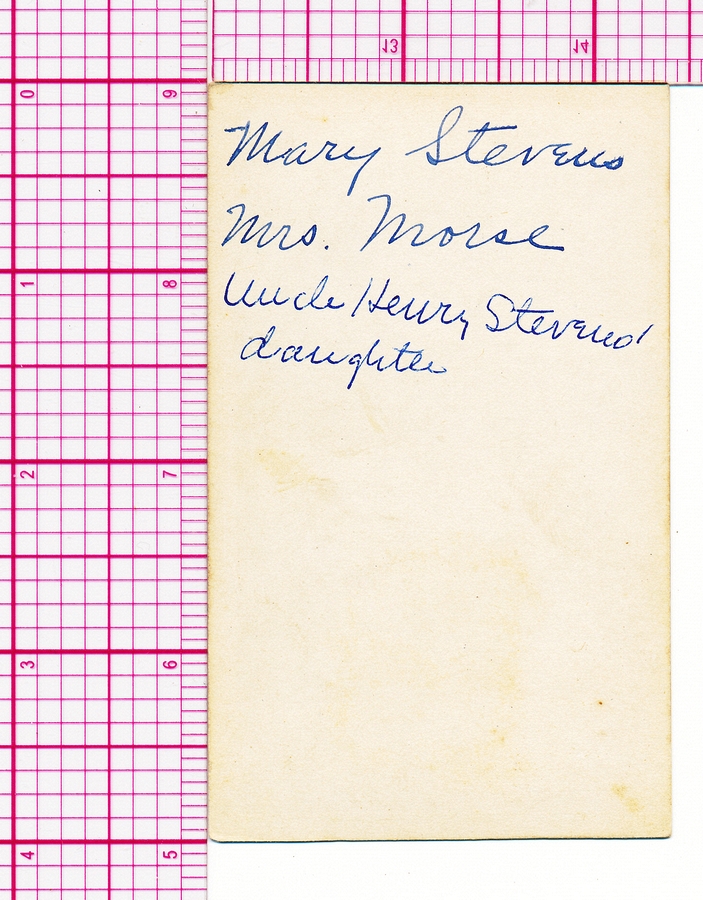 13 14
0 9
Mary Stevens
Mrs. Morse
1 8
Uncle Henry Stevens'
daughter
2 7
3 6
4 5